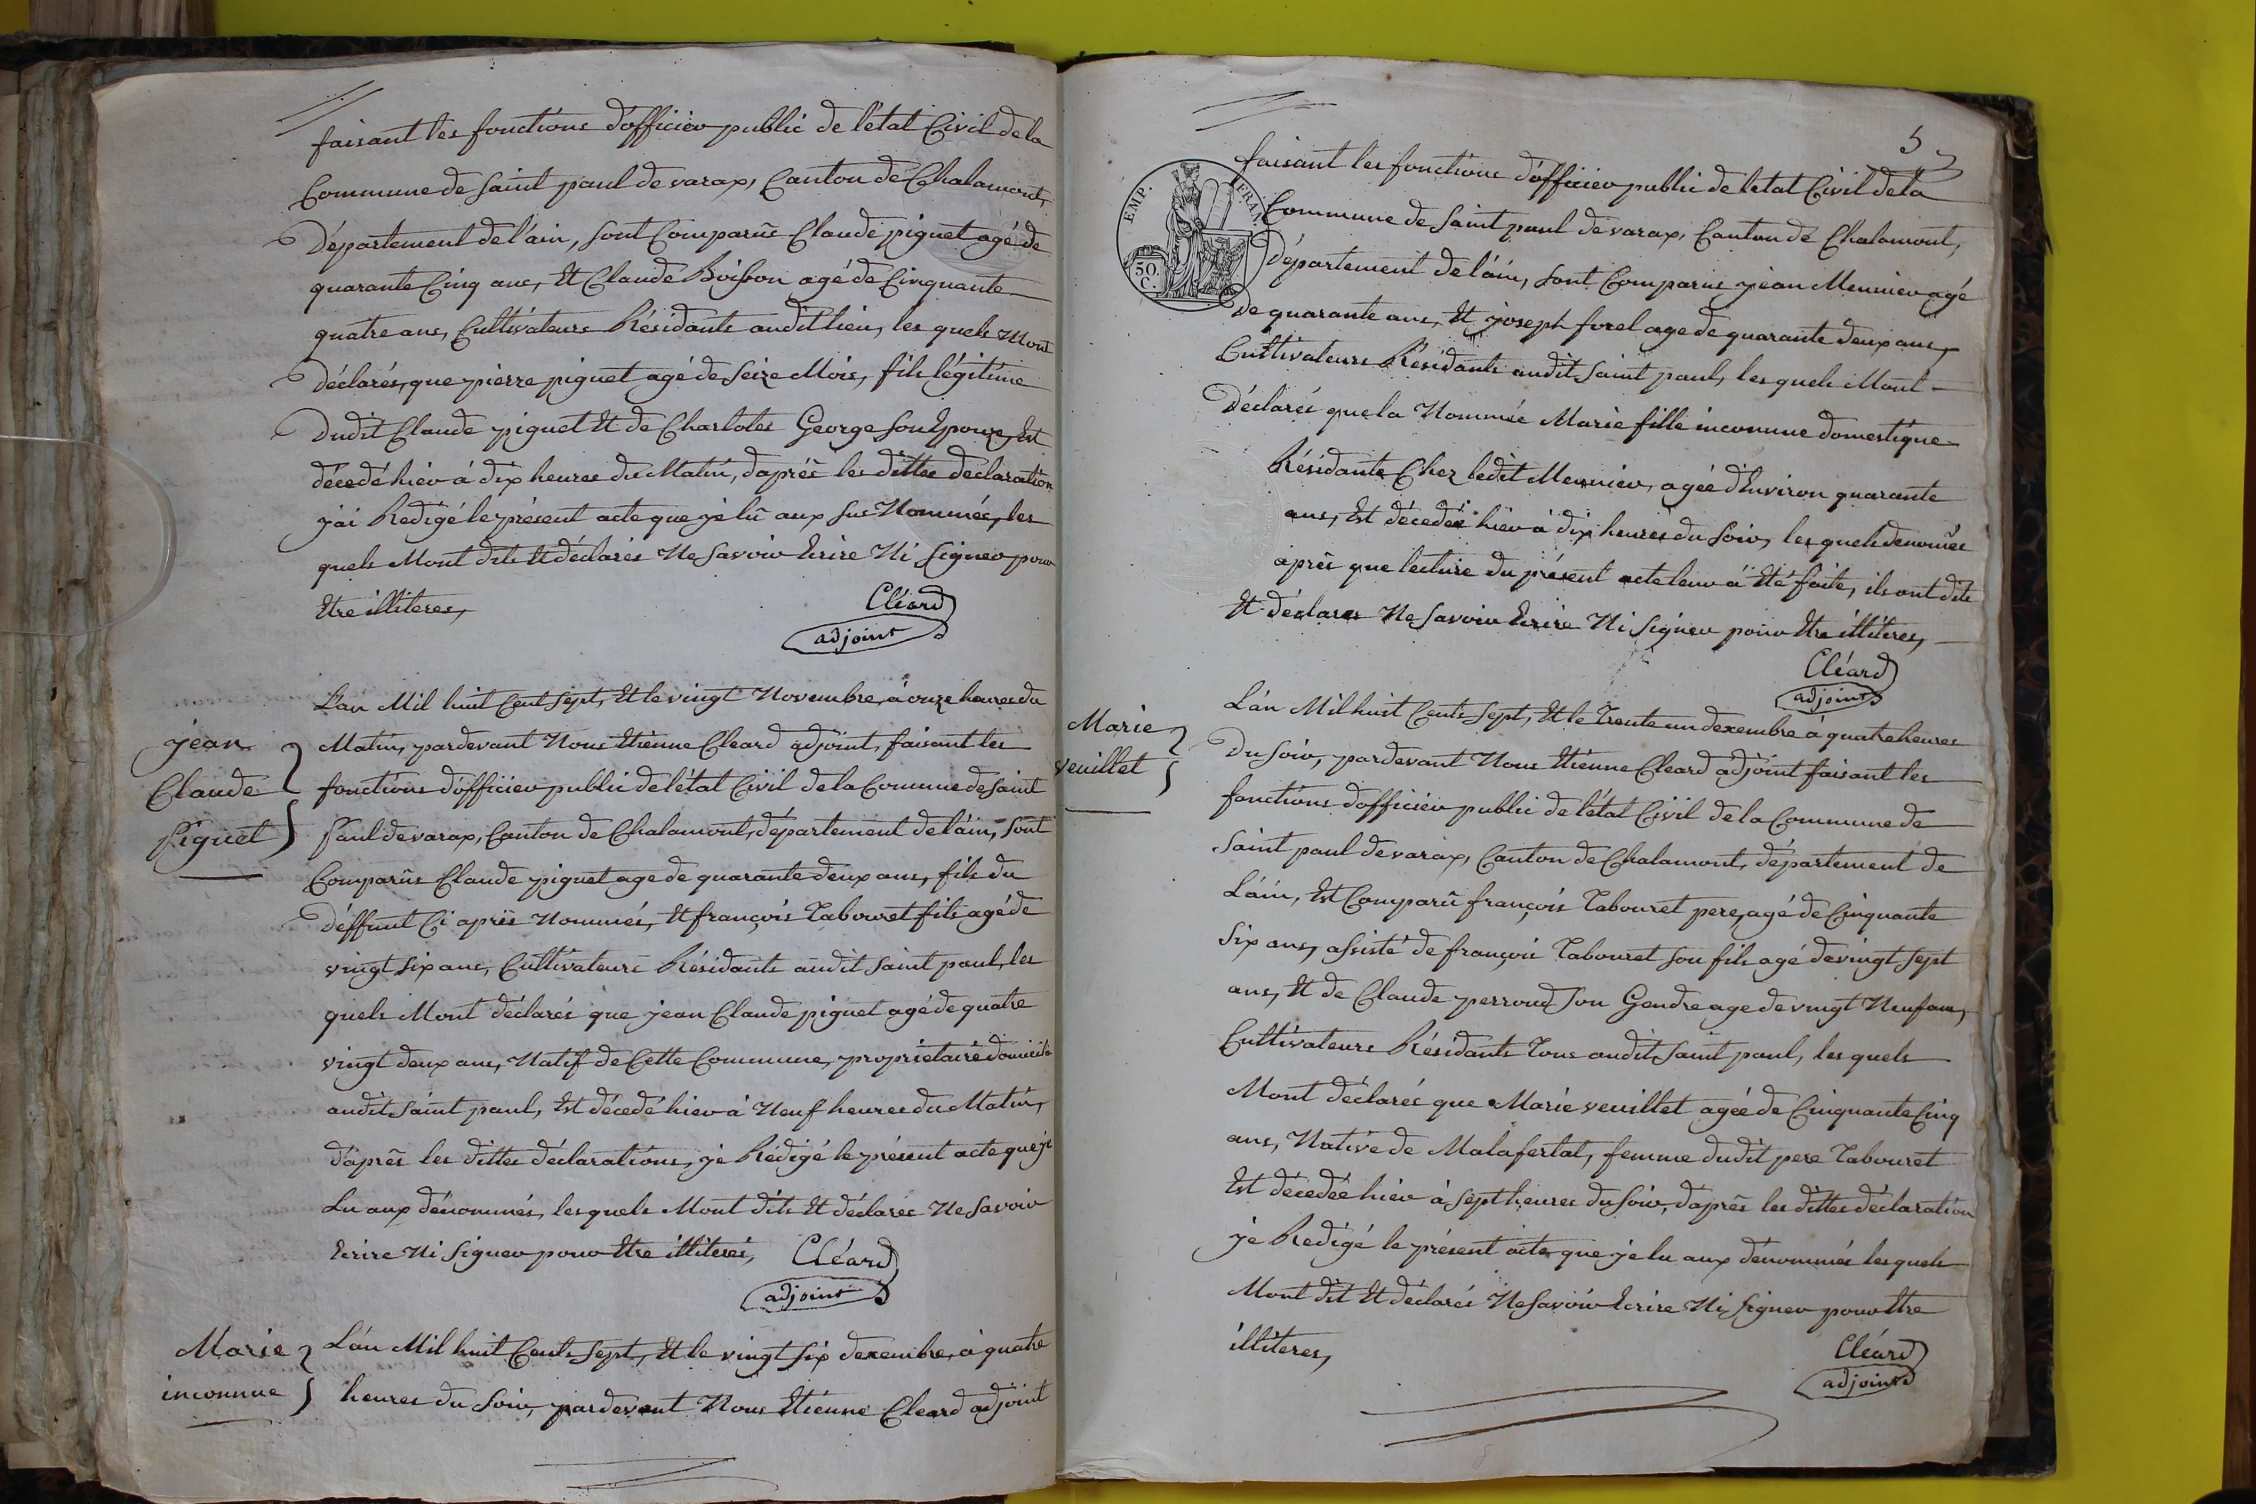 faisant les fonctions d'officier public de l'état Civil de la
Commune de saint paul de varax, Canton de Chalamont,
Département de l'ain, sont Comparus Claude piguet agé de
quarante Cinq ans, Et Claude Boisson agé de Cinquante
quatre ans, Cultivateurs Résidants audit lieu, les quels Mont
Déclarés, que pierre piguet agé de seize Mois, fils légitime
Dudit Claude piguet Et de Charlotes George son Epouze, Est
décedé hier à dix heures du Matin, daprés les dittes declaration
j'ai Redigé le présent acte que je lû aux sus Nommés, les
quels Mont dits Et déclarés Ne savoir Ecrire Ni signer pour
Etre illiteres,
Cléard
adjoint
jean
Claude
Piguet
L'an Mil huit Cent sept, Et le vingt Novembre, à onze heures du
Matin, pardevant Nous Etienne Cleard adjoint, faisant les
fonctions d'officier public de l'état Civil de la Commune de saint
Paul de varax, Canton de Chalamont, département de l'ain, sont
Comparûs Claude piguet age de quarante deux ans, fils du
Déffunt Ci aprés Nommés, Et françois Tabouret fils agé de
vingt six ans, Cultivateurs Résidants audit saint paul, les
quels Mont déclarés que jean Claude piguet agé de quatre
vingt deux ans, Natif de Cette Commune, proprietaire domicilié
audit saint paul, Est décedé hier à Neuf heures du Matin,
daprés les dittes déclarations, je Redigé le présent acte que je
Lu aux dénommés, les quels Mont dits Et déclarés Ne savoir
Ecrire Ni signer pour Etre illiterés,
Cléard
adjoint
Marie
inconnue
L'an Mil huit Cents sept, Et le vingt six dexembre, à quatre
heures du soir, pardevant Nous Etienne Cleard adjoint
5
EMP. FRAN.
50.
C.
faisant les fonctions d'officier public de l'etat Civil de la
Commune de saint paul de varax, Canton de Chalamont,
Département de l'ain, sont Comparus jean Meunier agé
de quarante ans, Et joseph forel age de quarante deux ans,
Cultivateurs Résidants audit saint paul, les quels Mont
Déclarés que la Nommée Marie fille inconnue domestique
Résidante Chez ledit Meunier, agée d'Environ quarante
ans, Est décedée hier à dix heures du soir, les quels denommés
aprés que lecture du présent acte leur à Eté faite, ils ont dits
Et déclarés Ne savoir Ecrire Ni signer pour Etre illiteres,
Cléard
adjoint
Marie
veuillet
L'an Mil huit Cents sept, Et le Trente un dexembre à quatre heures
Du soir, pardevant Nous Etienne Cleard adjoint faisant les
fonctions d'officier public de l'état Civil de la Commune de
saint paul de varax, Canton de Chalamont, département de
L'ain, Est Comparû françois Tabouret pere, agé de Cinquante
six ans, assisté de françois Tabouret son fils agé de vingt sept
ans, Et de Claude perroud son Gendre age de vingt Neuf ans,
Cultivateurs Résidants Tous audit saint paul, les quels
Mont déclarés que Marie veuillet agée de Cinquante Cinq
ans, Native de Malafertat, femme dudit pere Tabouret
Est décedée hier à sept heures du soir, daprés les dittes déclaration
je Redigé le présent acte que je lu aux dénommés les quels
Mont dit Et déclarés Ne savoir Ecrire Ni signer pour Etre
illiteres,
Cléard
adjoint